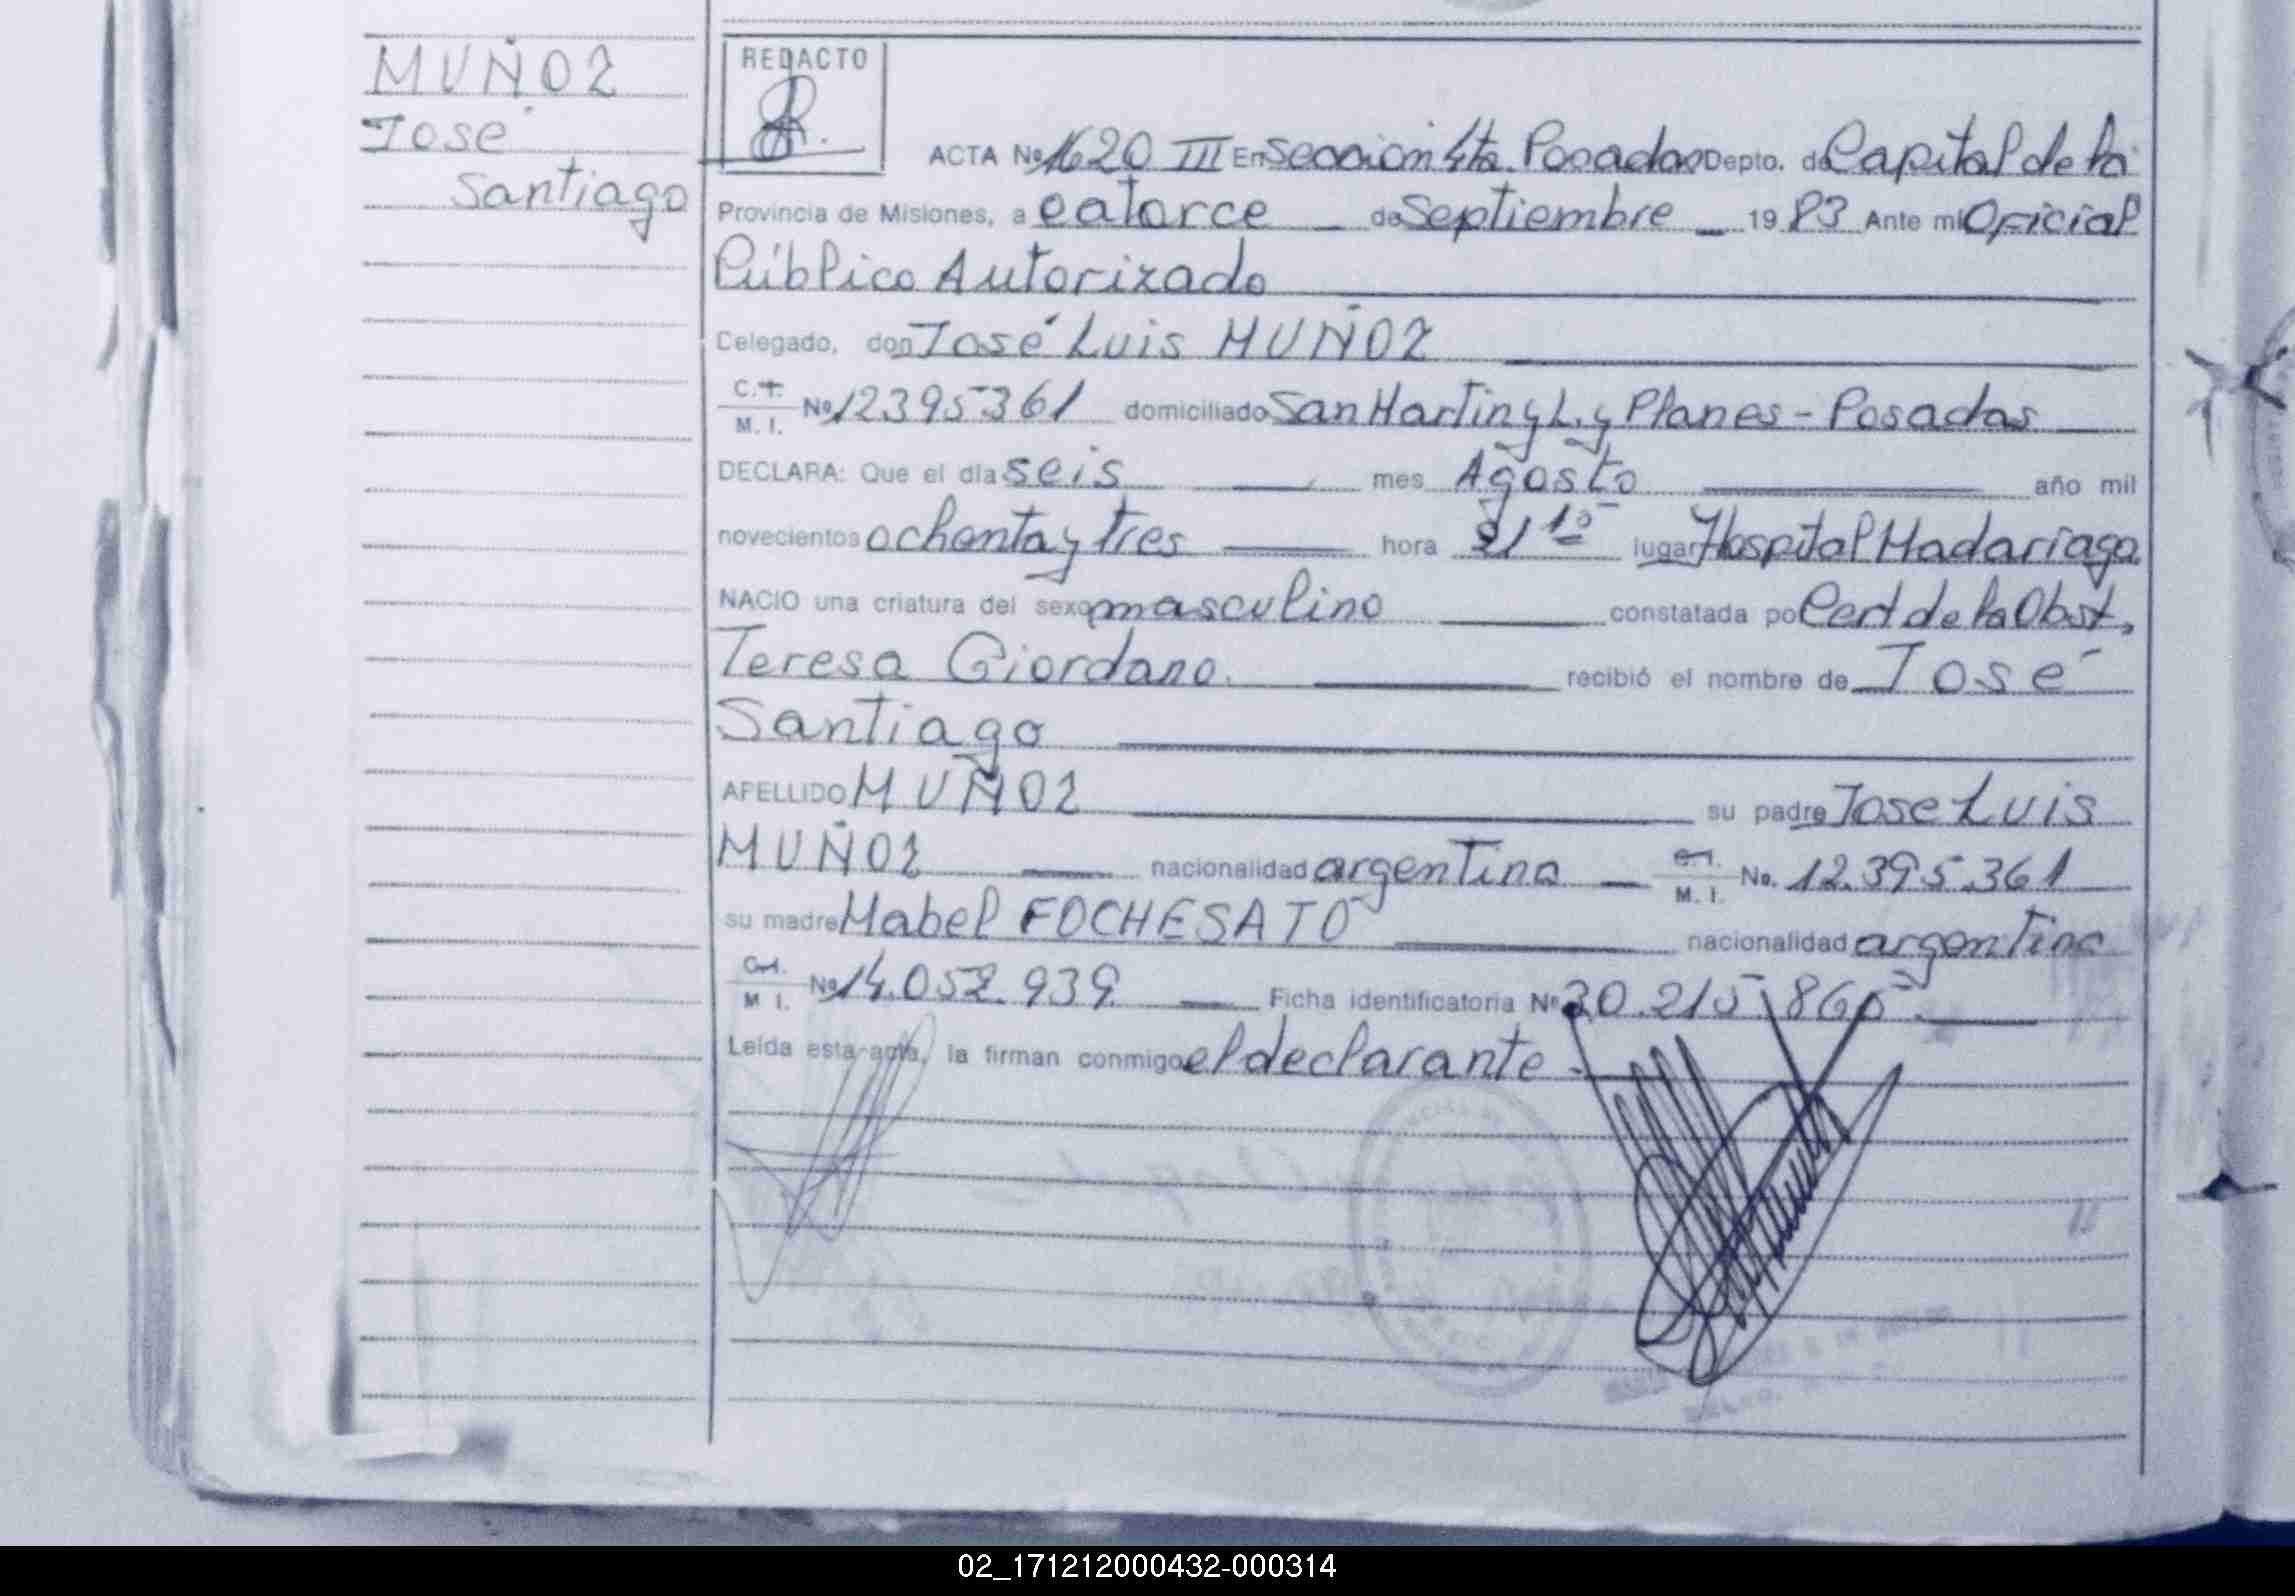 MUÑOZ
José
Santiago
REDACTO
ACTA Nº 1620 III En Sección 4ta. Posadas Depto. de Capital de la
Provincia de Misiones, a catorce de Septiembre 1983 Ante mí Oficial
Público Autorizado
Celegado, don José Luis MUÑOZ
C.I. M. I. Nº 12395361 domiciliado San Martin y L. y Planes - Posadas
DECLARA: Que el día seis mes Agosto año mil
novecientos ochenta y tres hora 21 15 lugar Hospital Madariaga
NACIO una criatura del sexo masculino constatada po Cert de la Obst,
Teresa Giordano. recibió el nombre de José
Santiago
APELLIDO MUÑOZ su padre Jose Luis
MUÑOZ nacionalidad argentina C.I. M. I. No. 12.395.361
su madre Mabel FOCHESATO nacionalidad argentina
C.I. M I. Nº 14.052.939 Ficha identificatoria Nº 30.215.865.
Leída esta acta, la firman conmigo el declarante.
02_171212000432-000314